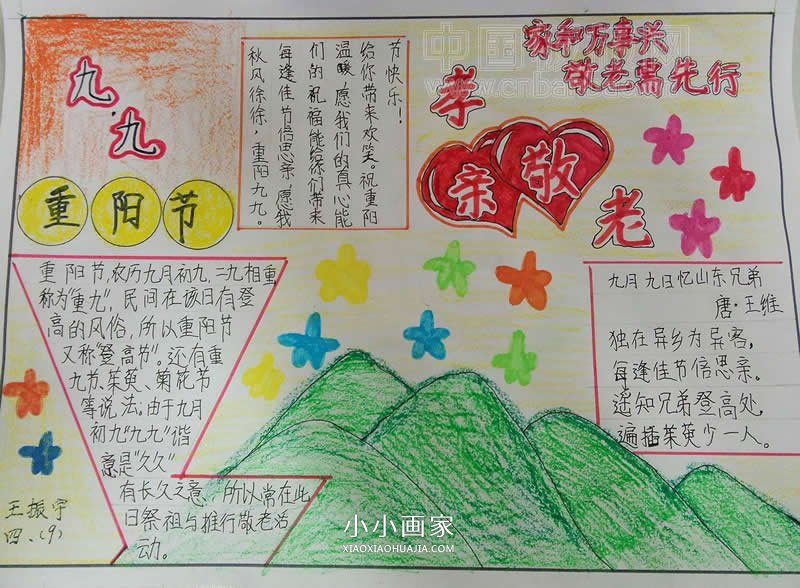 九.九
重阳节
节快乐！
给你带来欢笑。祝重阳
温暖 愿我们的真心能
们的祝福能给你们带来
每逢佳节倍思亲 愿我
秋风徐徐，重阳九九。
家和万事兴
敬老需先行
孝
亲敬
老
重阳节，农历九月初九，二九相重
称为"重九"，民间在该日有登
高的风俗，所以重阳节
又称"登高节"。还有重
九节、茱萸、菊花节
等说法；由于九月
初九"九九"谐
意是"久久"
有长久之意，所以常在此
日祭祖与推行敬老活
动。
九月九日忆山东兄弟
唐·王维
独在异乡为异客，
每逢佳节倍思亲。
遥知兄弟登高处
遍插茱萸少一人。
王振宇
四、(9)
小小画家
XIAOXIAOHUAJIA.COM